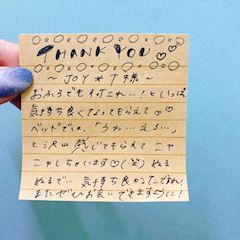 THANK YOU♡♡
~ JOY*T様 ~
おふろでもイイこれ…!としっぽ
気持ち良くなってもらえて♡
ベッドでは、「うわ…えろ…」
と沢山感じてもらえて ニヤ
ニヤしちゃいます♡(笑) ぬる
ぬるで… 気持ち良かったですね!
またぜひお願いできますように!